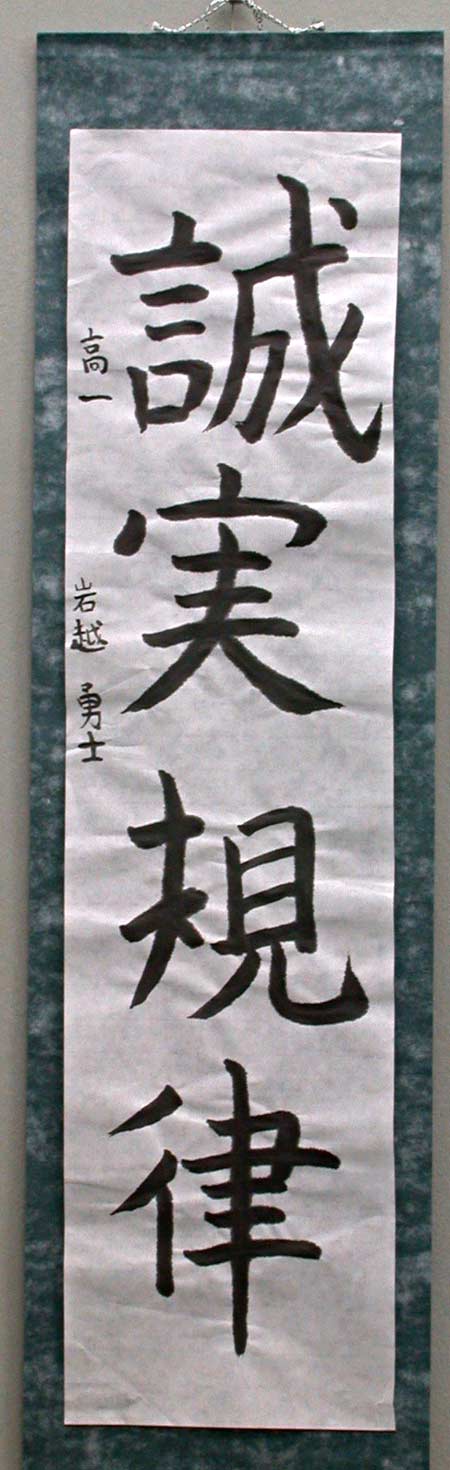 誠実規律
高一 岩越 勇士